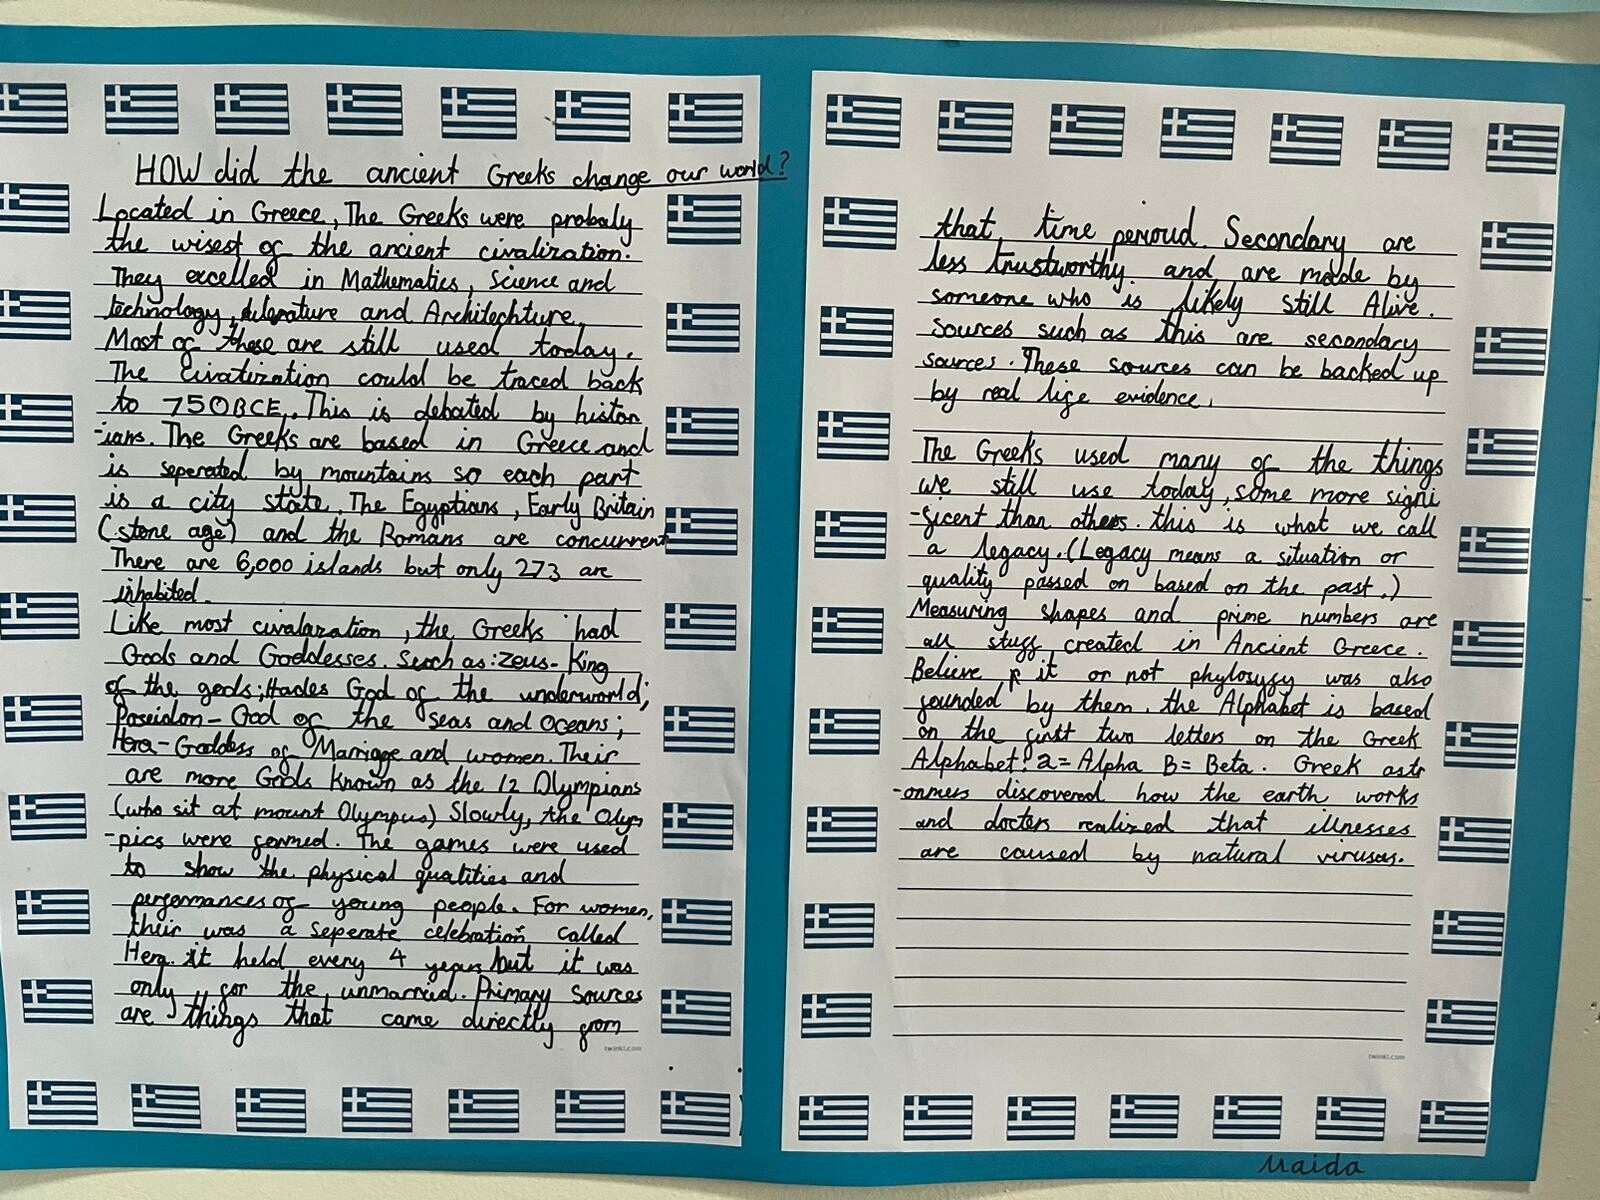 HOW did the ancient Greeks change our world?
Located in Greece, The Greeks were probaly
the wisest of the ancient civalization.
They excelled in Mathematics, Science and
technology, literature and Architechture.
Most of these are still used today.
The Civatization could be traced back
to 750BCE,. This is debated by histor
-ians. The Greeks are based in Greece and
is seperated by mountains so each part
is a city state. The Egyptians, Early Britain
(stone age) and the Romans are concurrent
There are 6,000 islands but only 273 are
inhabited.
Like most civalazation, the Greeks had
Gods and Goddesses. Such as: Zeus- King
of the gods; Hades God of the underworld;
Poseidon- God of the seas and oceans;
Hera- Goddess of Marriage and women. Their
are more Gods known as the 12 Olympians
(who sit at mount Olympus) Slowly, the Olym
-pics were formed. The games were used
to show the physical qualities and
performances of young people. For women,
their was a seperate celebration called
Hera. it held every 4 years but it was
only for the unmarried. Primary sources
are things that came directly from
twinkl.com
that time perioud. Secondary are
less trustworthy and are made by
someone who is likely still Alive.
sources such as this are secondary
sources. These sources can be backed up
by real life evidence.
The Greeks used many of the things
we still use today, some more signi
-ficent than others. this is what we call
a legacy. (Legacy means a situation or
quality passed on based on the past.)
Measuring shapes and prime numbers are
all stuff created in Ancient Greece.
Believe it or not phylosyfy was also
founded by them. the Alphabet is based
on the first two letters on the Greek
Alphabet: a= Alpha B= Beta. Greek astr
-onmers discovered how the earth works
and docters realized that illnesses
are caused by natural viruses.
twinkl.com
Maida